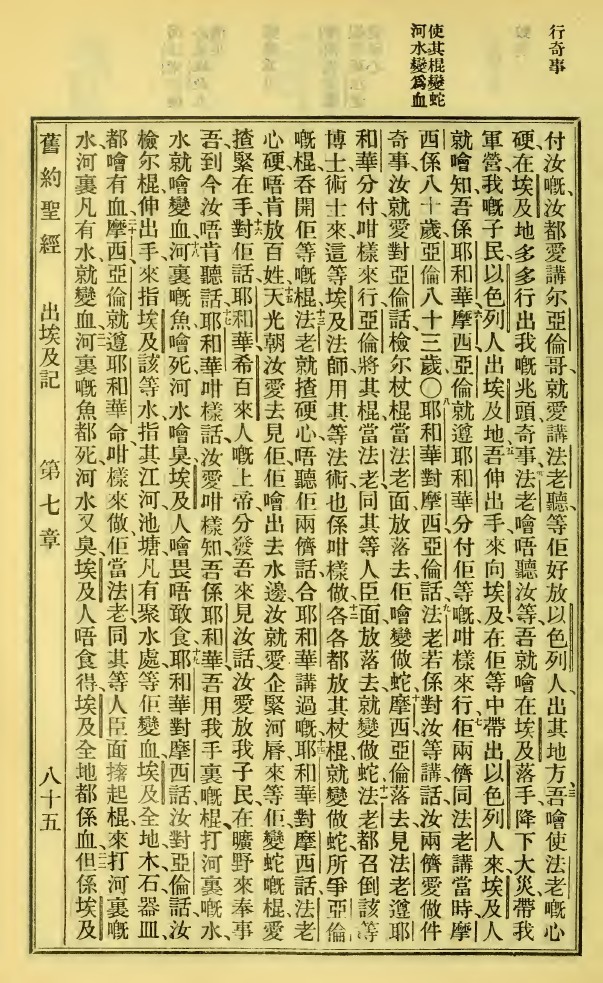 行奇事
使其棍變蛇
河水變爲血
付汝嘅、汝都愛講、尔亞倫哥就愛講法老聽、等佢好放以色列人出其地方、三吾噲使法老嘅心
硬、在埃及地多多行出我嘅兆頭奇事、四法老噲唔聽汝等、吾就噲在埃及落手、降下大災、帶我
軍營我嘅子民以色列人出埃及地、五吾伸出手來向埃及、在佢等中帶出以色列人來、埃及人
就噲知吾係耶和華、六摩西亞倫就遵耶和華分付佢等嘅咁樣來行、七佢兩儕同法老講當時、摩
西係八十歲、亞倫八十三歲、○八耶和華對摩西亞倫話、九法老若係對汝等講話、汝兩儕愛做件
奇事、汝就愛對亞倫話、檢尔杖棍當法老面放落去、佢噲變做蛇、十摩西亞倫落去見法老、遵耶
和華分付咁樣來行、亞倫將其棍當法老同其等人臣面放落去、就變做蛇、十一法老都召倒該等
博士術士來、這等埃及法師用其等法術也係咁樣做、十二各各都放其杖棍就變做蛇、所爭亞倫
嘅棍吞開佢等嘅棍、十三法老就揸硬心、唔聽佢兩儕話、合耶和華講過嘅、十四耶和華對摩西話、法老
心硬、唔肯放百姓、十五天光朝汝愛去見佢、佢噲出去水邊、汝就愛企緊河脣來等佢、變蛇嘅棍愛
揸緊在手、十六對佢話、耶和華希百來人嘅上帝、分發吾來見汝話、汝愛放我子民、在曠野來奉事
吾、到今汝唔肯聽話、十七耶和華咁樣話、汝愛咁樣知吾係耶和華、吾用我手裏嘅棍打河裏嘅水、
水就噲變血、十八河裏嘅魚噲死、河水噲臭、埃及人噲畏唔敢食、十九耶和華對摩西話、汝對亞倫話、汝
檢尔棍、伸出手來指埃及該等水、指其江河池塘、凡有聚水處、等佢變血、埃及全地木石器皿
都噲有血、二十摩西亞倫就遵耶和華命咁樣來做、佢當法老同其等人臣面、擡起棍來打河裏嘅
水、河裏凡有水就變血、二一河裏嘅魚都死、河水又臭、埃及人唔食得、埃及全地都係血、二二但係埃及
舊約聖經 出埃及記 第七章 八十五